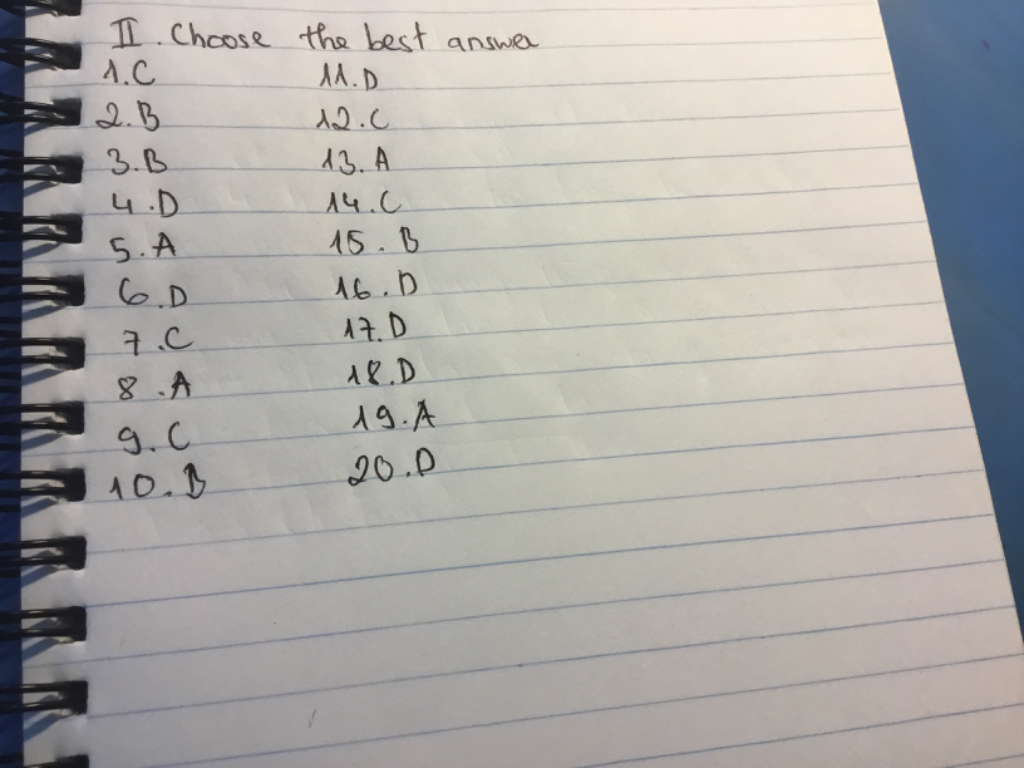 II. Choose the best answer
1.C
2.B
3.B
4.D
5.A
6.D
7.C
8.A
9.C
10.B
11.D
12.C
13.A
14.C
15.B
16.D
17.D
18.D
19.A
20.D